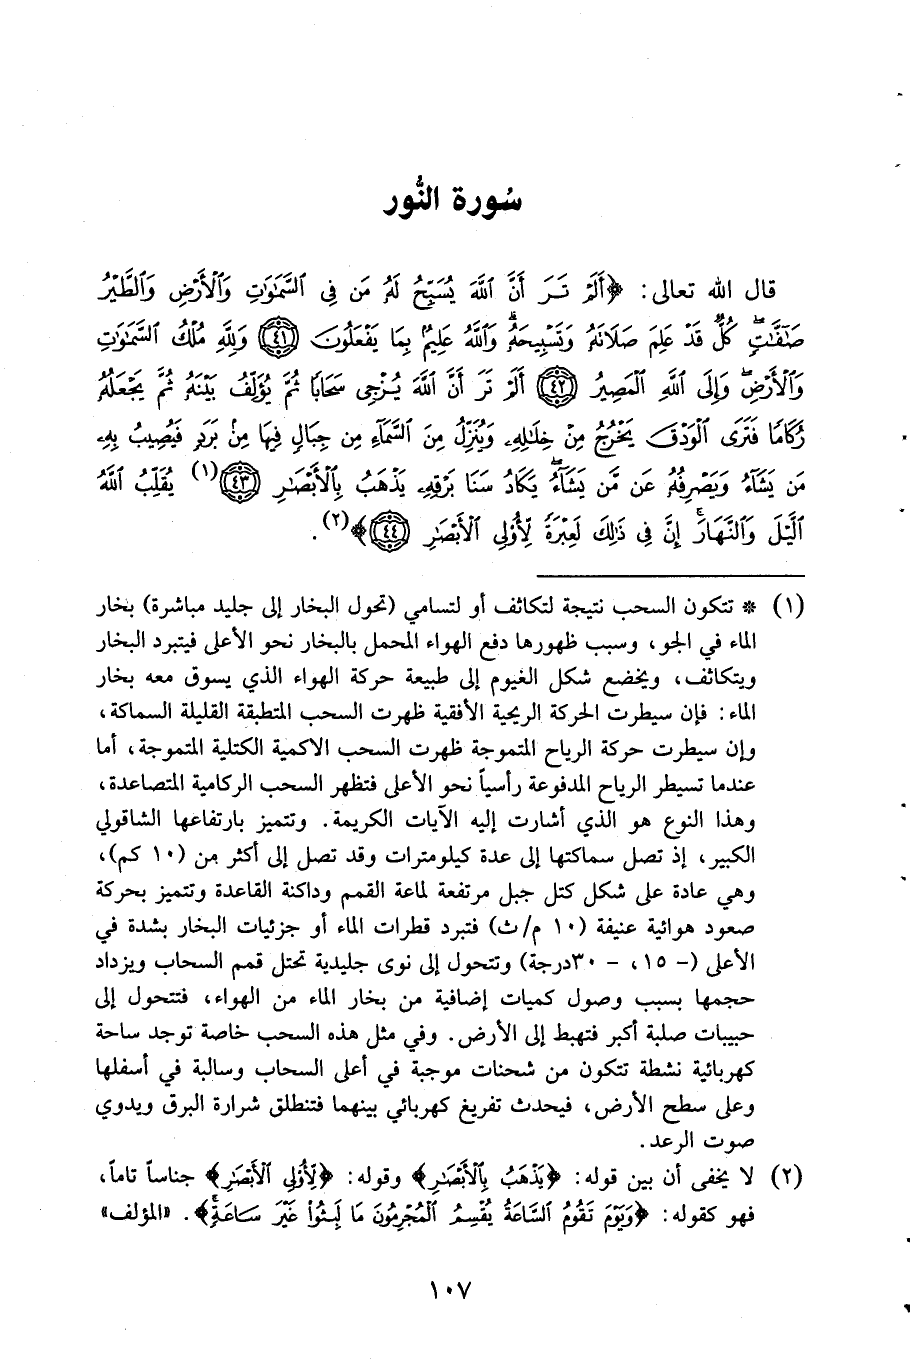 سُورة النُّور
قال الله تعالى: ﴿أَلَمْ تَرَ أَنَّ ٱللَّهَ يُسَبِّحُ لَهُۥ مَن فِى ٱلسَّمَٰوَٰتِ وَٱلْأَرْضِ وَٱلطَّيْرُ
صَٰٓفَّٰتٍۖ كُلٌّ قَدْ عَلِمَ صَلَانَهُۥ وَتَسْبِيحَهُۥۗ وَٱللَّهُ عَلِيمٌۢ بِمَا يَفْعَلُونَ ۝٤١ وَلِلَّهِ مُلْكُ ٱلسَّمَٰوَٰتِ
وَٱلْأَرْضِۖ وَإِلَى ٱللَّهِ ٱلْمَصِيرُ ۝٤٢ أَلَمْ تَرَ أَنَّ ٱللَّهَ يُزْجِى سَحَابًا ثُمَّ يُؤَلِّفُ بَيْنَهُۥ ثُمَّ يَجْعَلُهُۥ
رُكَامًا فَتَرَى ٱلْوَدْقَ يَخْرُجُ مِنْ خِلَٰلِهِۦ وَيُنَزِّلُ مِنَ ٱلسَّمَآءِ مِن جِبَالٍ فِيهَا مِنۢ بَرَدٍ فَيُصِيبُ بِهِۦ
مَن يَشَآءُ وَيَصْرِفُهُۥ عَن مَّن يَشَآءُۖ يَكَادُ سَنَا بَرْقِهِۦ يَذْهَبُ بِٱلْأَبْصَٰرِ ۝٤٣(١) يُقَلِّبُ ٱللَّهُ
ٱلَّيْلَ وَٱلنَّهَارَۚ إِنَّ فِى ذَٰلِكَ لَعِبْرَةً لِّأُو۟لِى ٱلْأَبْصَٰرِ ۝٤٤﴾(٢).
(١) * تتكون السحب نتيجة لتكاثف أو لتسامي (تحول البخار إلى جليد مباشرة) بخار
الماء في الجو، وسبب ظهورها دفع الهواء المحمل بالبخار نحو الأعلى فيتبرد البخار
ويتكاثف، ويخضع شكل الغيوم إلى طبيعة حركة الهواء الذي يسوق معه بخار
الماء: فإن سيطرت الحركة الريحية الأفقية ظهرت السحب المتطبقة القليلة السماكة،
وإن سيطرت حركة الرياح المتموجة ظهرت السحب الاكمية الكتلية المتموجة، أما
عندما تسيطر الرياح المدفوعة رأسياً نحو الأعلى فتظهر السحب الركامية المتصاعدة،
وهذا النوع هو الذي أشارت إليه الآيات الكريمة. وتتميز بارتفاعها الشاقولي
الكبير، إذ تصل سماكتها إلى عدة كيلومترات وقد تصل إلى أكثر من (١٠ كم)،
وهي عادة على شكل كتل جبل مرتفعة لماعة القمم وداكنة القاعدة وتتميز بحركة
صعود هوائية عنيفة (١٠ م/ث) فتبرد قطرات الماء أو جزئيات البخار بشدة في
الأعلى (- ١٥، - ٣٠درجة) وتتحول إلى نوى جليدية تحتل قمم السحاب ويزداد
حجمها بسبب وصول كميات إضافية من بخار الماء من الهواء، فتتحول إلى
حبيبات صلبة أكبر فتهبط إلى الأرض. وفي مثل هذه السحب خاصة توجد ساحة
كهربائية نشطة تتكون من شحنات موجبة في أعلى السحاب وسالبة في أسفلها
وعلى سطح الأرض، فيحدث تفريغ كهربائي بينهما فتنطلق شرارة البرق ويدوي
صوت الرعد.
(٢) لا يخفى أن بين قوله: ﴿يَذْهَبُ بِٱلْأَبْصَٰرِ﴾ وقوله: ﴿لِّأُو۟لِى ٱلْأَبْصَٰرِ﴾ جناساً تاماً،
فهو كقوله: ﴿وَيَوْمَ تَقُومُ ٱلسَّاعَةُ يُقْسِمُ ٱلْمُجْرِمُونَ مَا لَبِثُوا۟ غَيْرَ سَاعَةٍۚ﴾. «المؤلف»
١٠٧